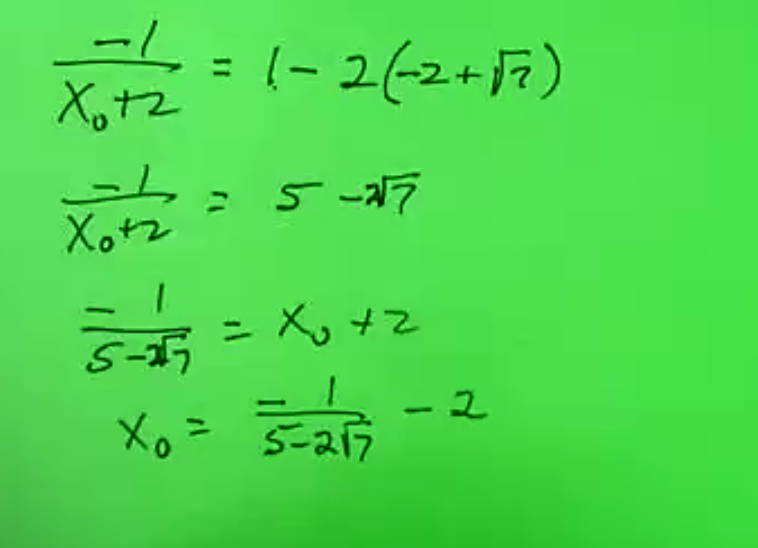 -1/(x₀+2) = 1-2(-2+√7)
-1/(x₀+2) = 5-2√7
-1/(5-2√7) = x₀+2
x₀ = -1/(5-2√7) - 2